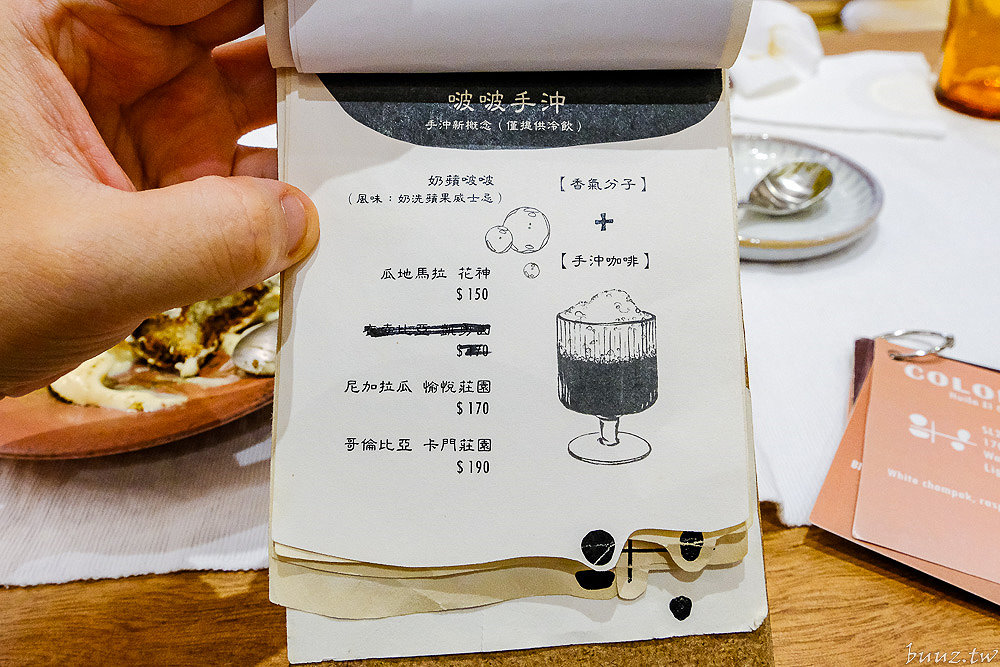 啵啵手沖
手沖新概念（僅提供冷飲）
奶蘋啵啵
（風味：奶洗蘋果威士忌）
【香氣分子】
+
【手沖咖啡】
瓜地馬拉 花神
$150
尼加拉瓜 愉悅莊園
$170
哥倫比亞 卡門莊園
$190
COLO
Huila El
White champok, ras
buuz.tw